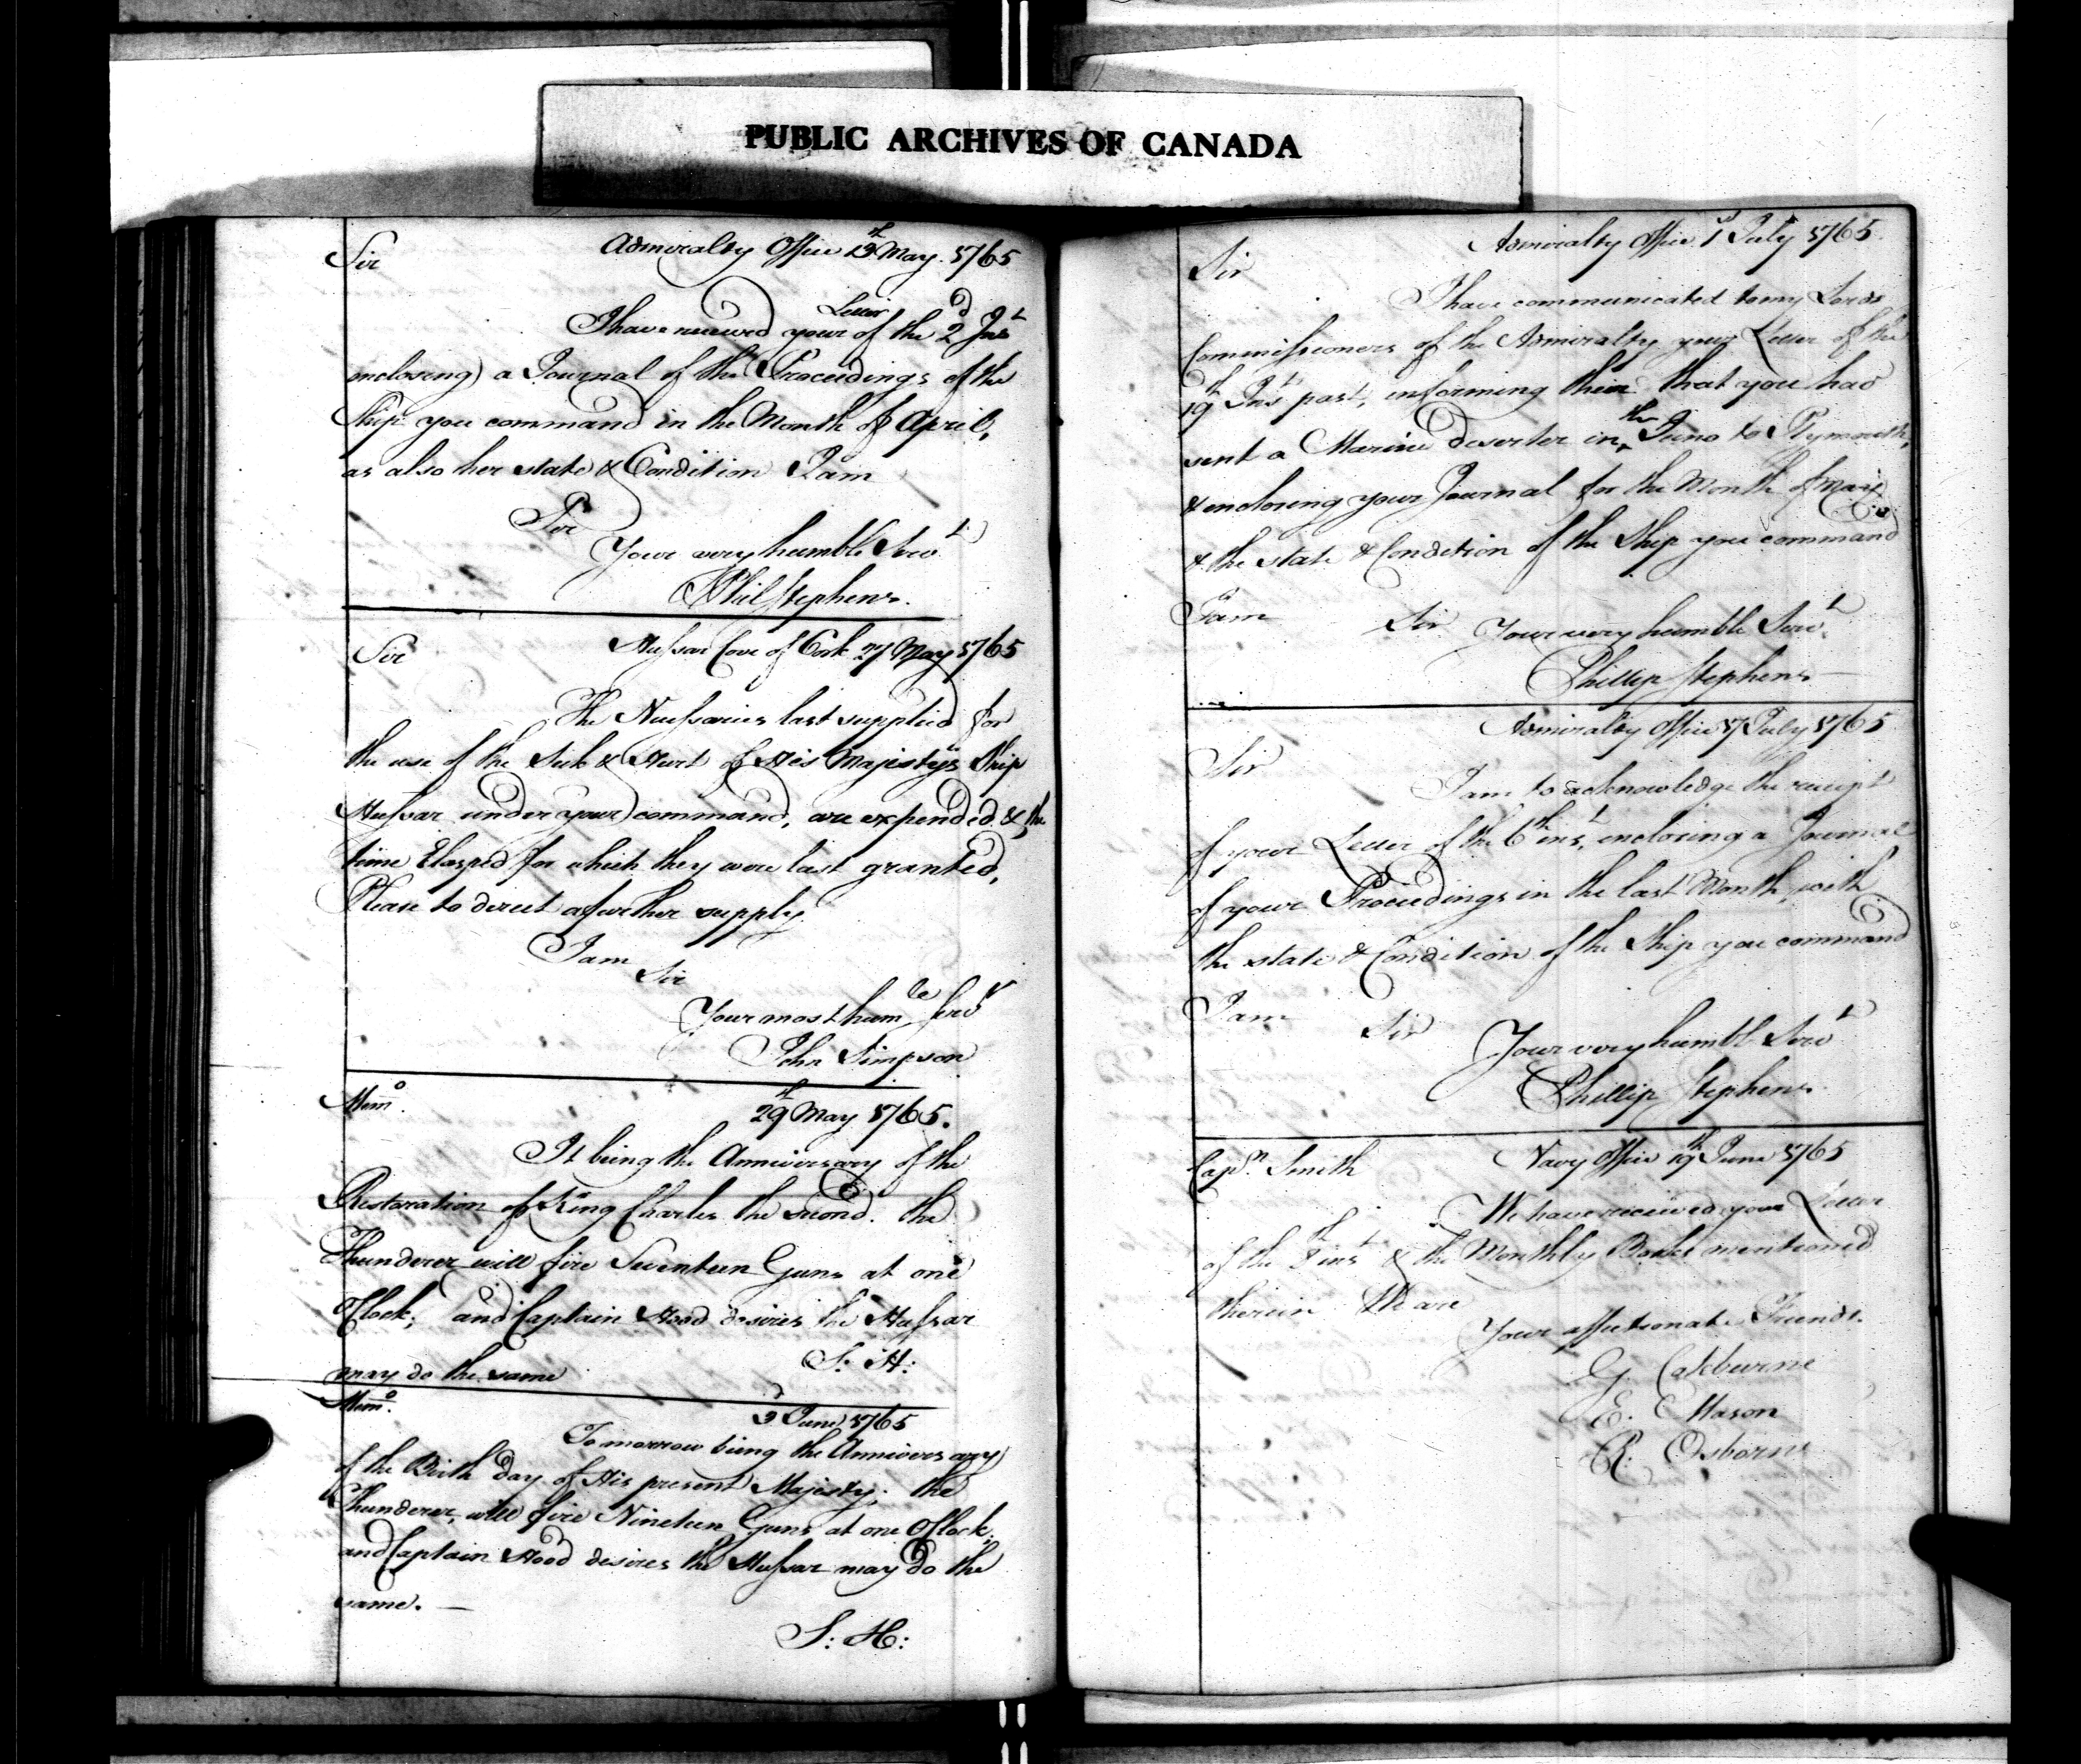 PUBLIC ARCHIVES OF CANADA
Sir
Admiralty Office 13th May. 1765
I have received your Letter of the 2d Inst
enclosing a Journal of the Proceedings of the
Ship you command in the Month of April,
as also her state & Condition I am
Sir
Your very humble Servt
Phil Stephens.
Sir
Hussar Cove of Cork 27 May 1765
The Necessaries last supplied for
the use of the Sick & Hurt of His Majestys Ship
Hussar under your command, are expended & the
time Elasped for which they were last granted,
Please to direct a further supply
I am
Sir
Your most humle Servt
John Simpson
Memo.
29th May 1765.
It being the Anniversary of the
Restoration of King Charles the second. the
Thunderer will fire Seventeen Guns at one
OClock; and Captain Hood desires the Hussar
may do the same
S: H:
Memo.
3d June 1765
Tomorrow being the Anniversary
of the Birth day of His present Majesty; the
Thunderer, will fire Nineteen Guns at one OClock:
and Captain Hood desires the Hussar may do the
same. —
S: H:
Admiralty Office 1st July 1765
Sir
I have communicated to my Lords
Commissioners of the Admiralty your Letter of the
19th Inst past, informing them that you had
sent a Marine deserter in the Juno to Plymouth,
& enclosing your Journal for the Month of May
& the state & Condition of the Ship you command
I am
Sir
Your very humble Servt
Phillip Stephens
Admiralty Office 17 July 1765
Sir
I am to acknowledge the receipt
of your Letter of the 6th inst, enclosing a Journal
of your Proceedings in the last Month, with
the state & Condition of the Ship you command
I am
Sir
Your very humble Servt
Phillip Stephens
Capn. Smith
Navy Office 19th June 1765
We have received your Letter
of the 8th inst & the Monthly Books mentioned
therein We are
Your affectionate Friends.
G. Cokburne
E. Mason
R. Osborne